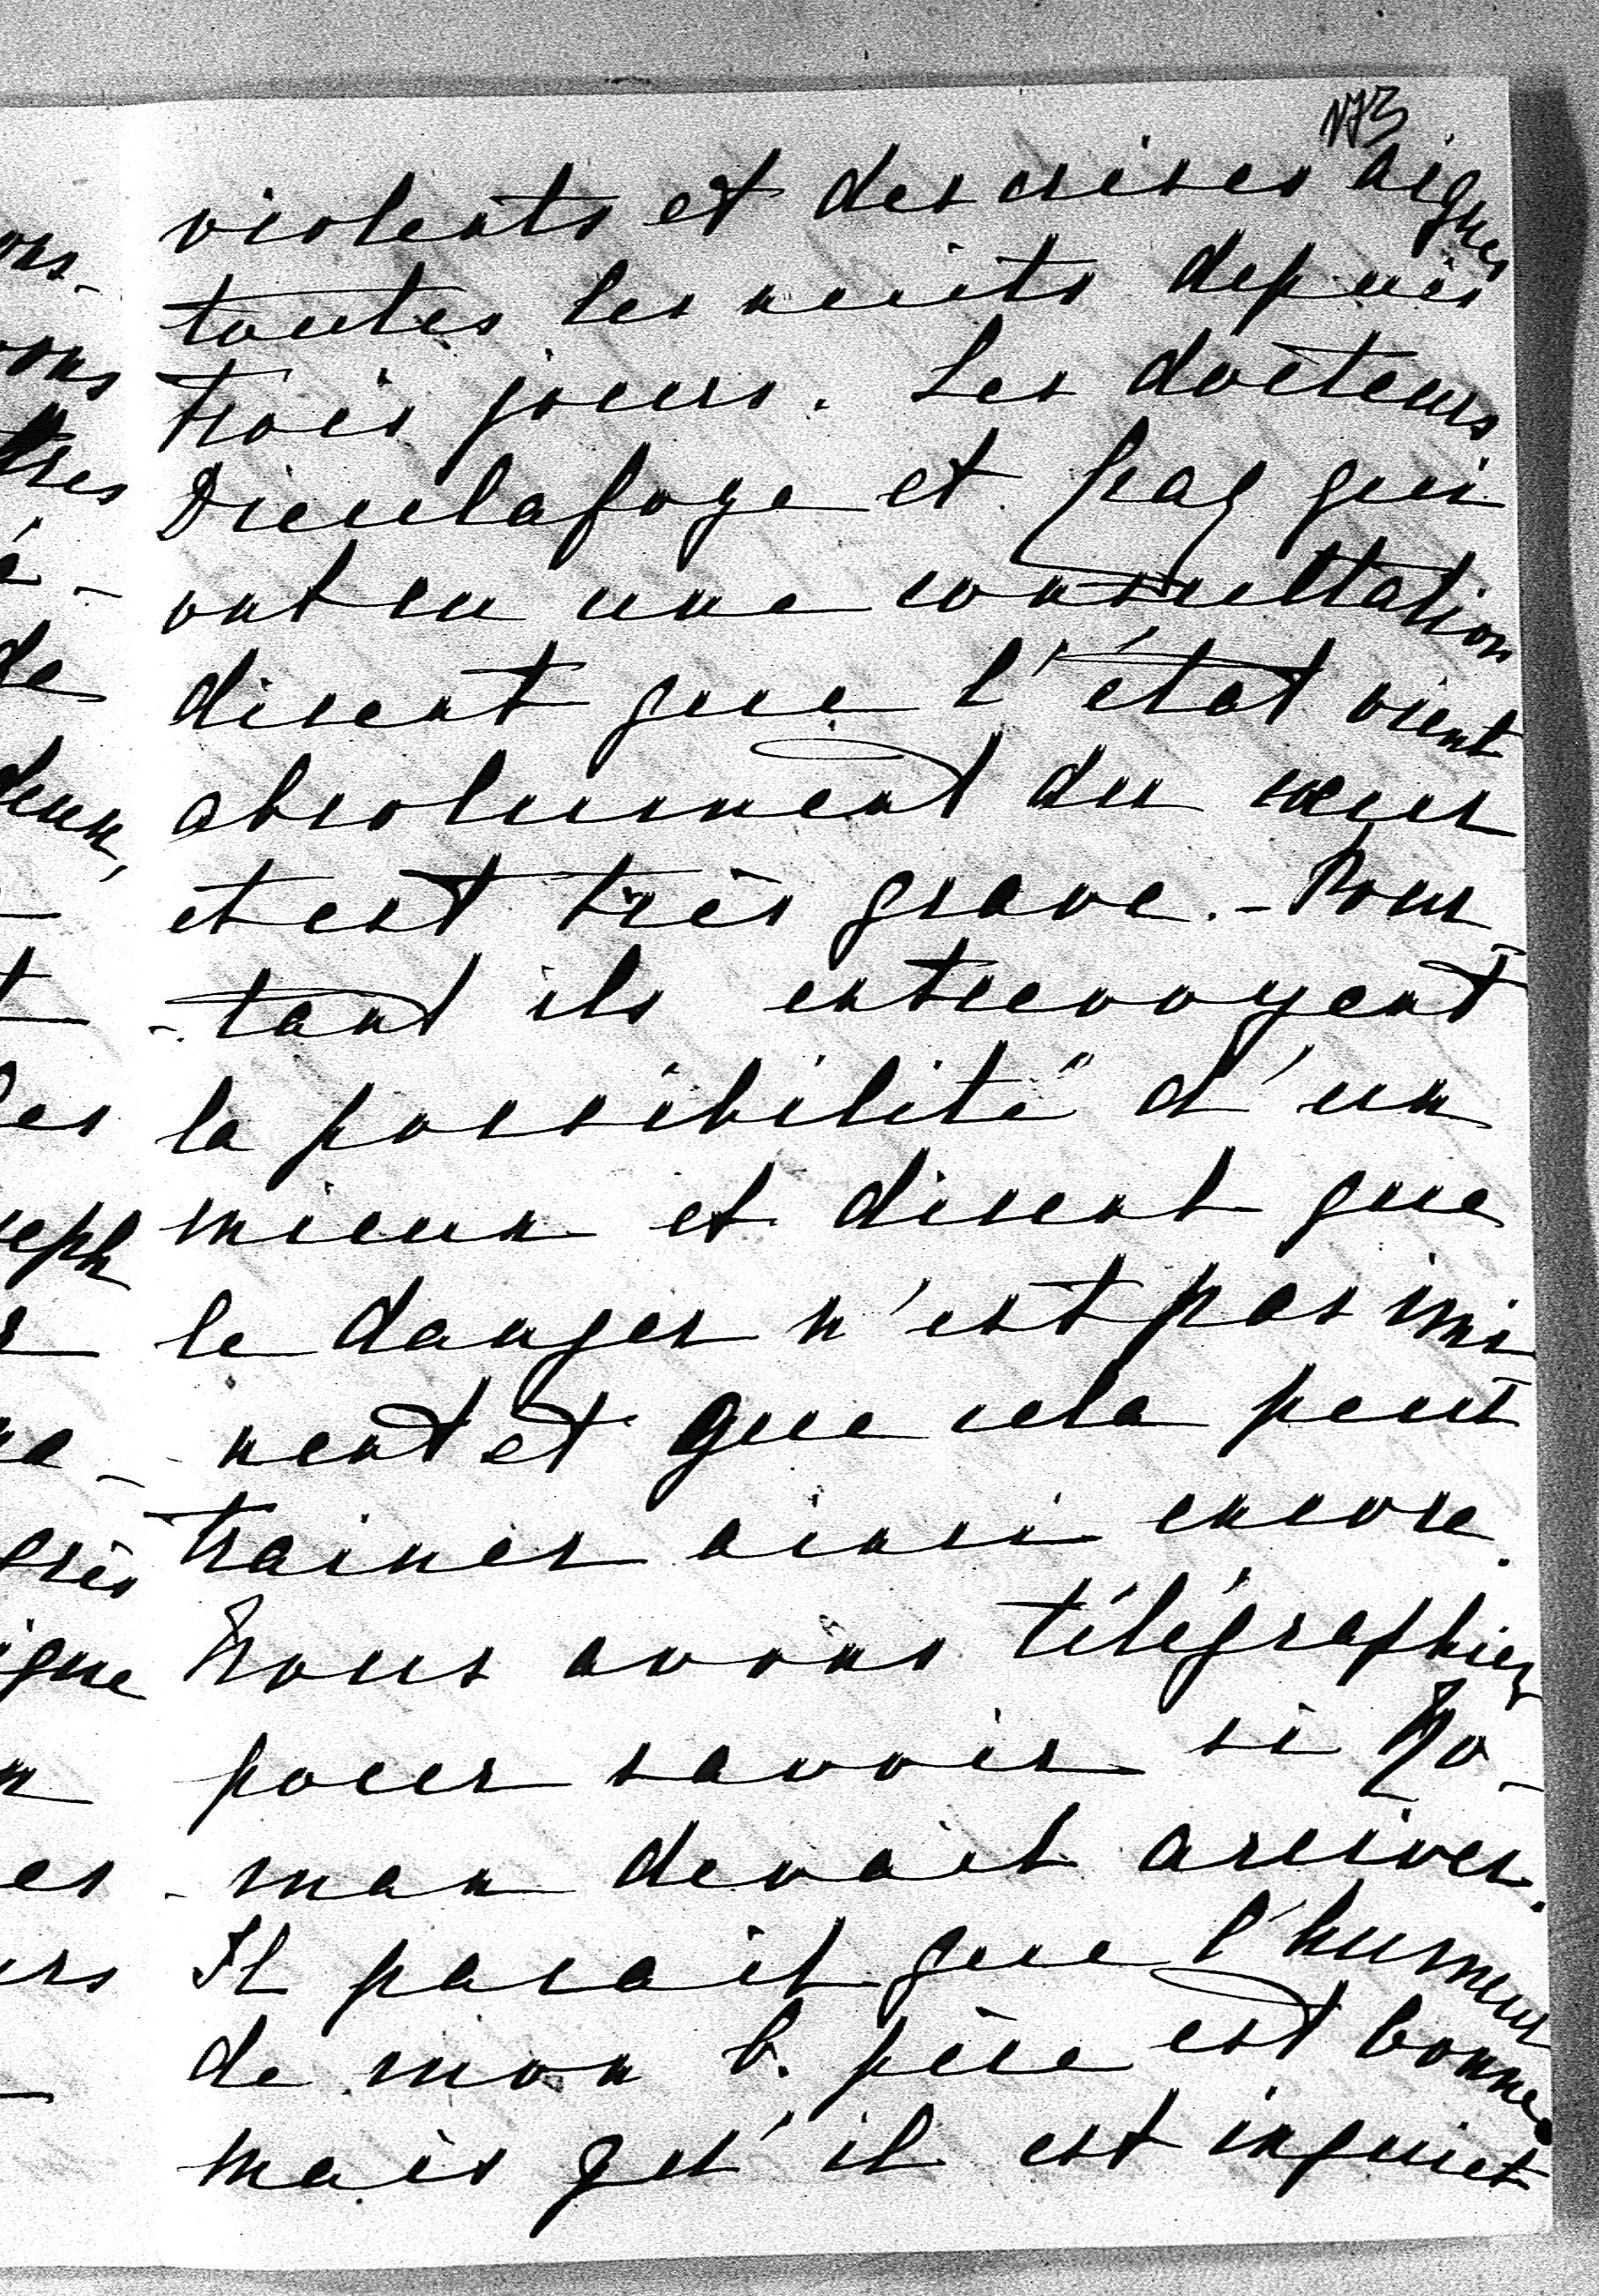 173
violents et des crises aigues
toutes les nuits depuis
trois jours. Les docteurs
Dieulafoye et Hag qui
ont eu une consultation
disent que l'état vient
absolument du cœur
et est très grave. - Pour-
-tant ils entrevoyent
la possibilité d'un
mieux et disent que
le danger n'est pas imi
-nent et que cela peut
trainer ainsi encore.
Nous avons télégraphiez
pour savoir si Ro-
-man devait arriver.
Il parait que l'humeur
de mon b. père est bonne
mais qu'il est inquiet